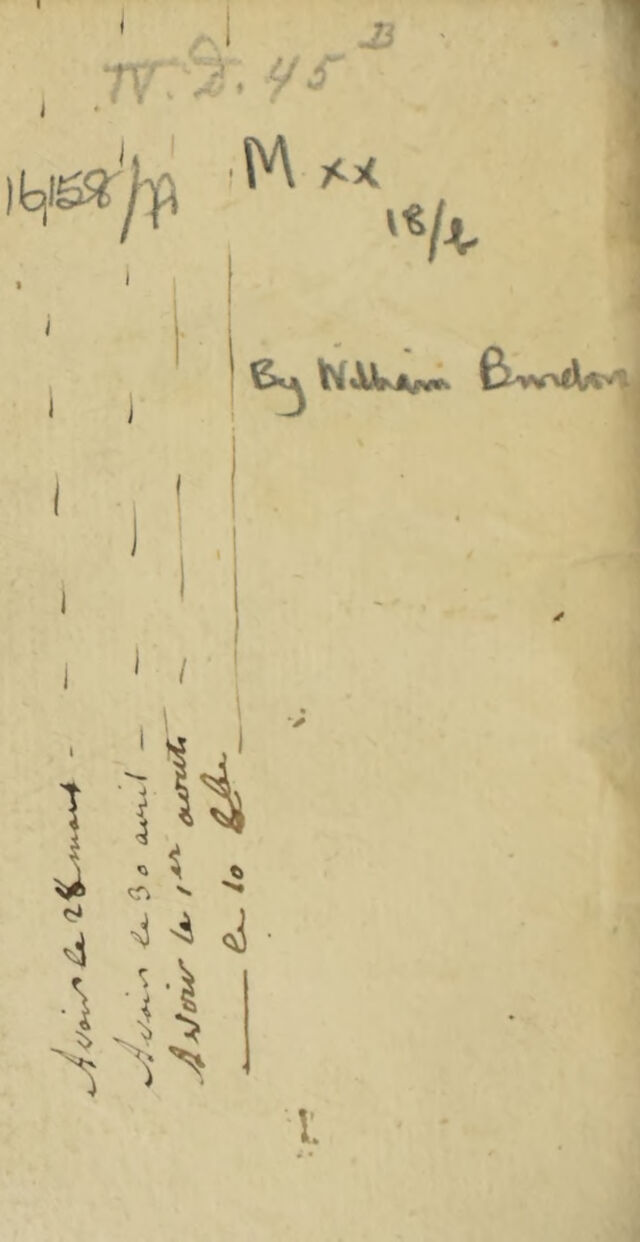 IV. D. 45 B
16158/A
M xx
18/6
By William Burdon
Avoir le 28 mars - - - - - - -
Avoir le 30 avril - - - - -
Avoir le 1er aoust - - -
— le 10 8bre —